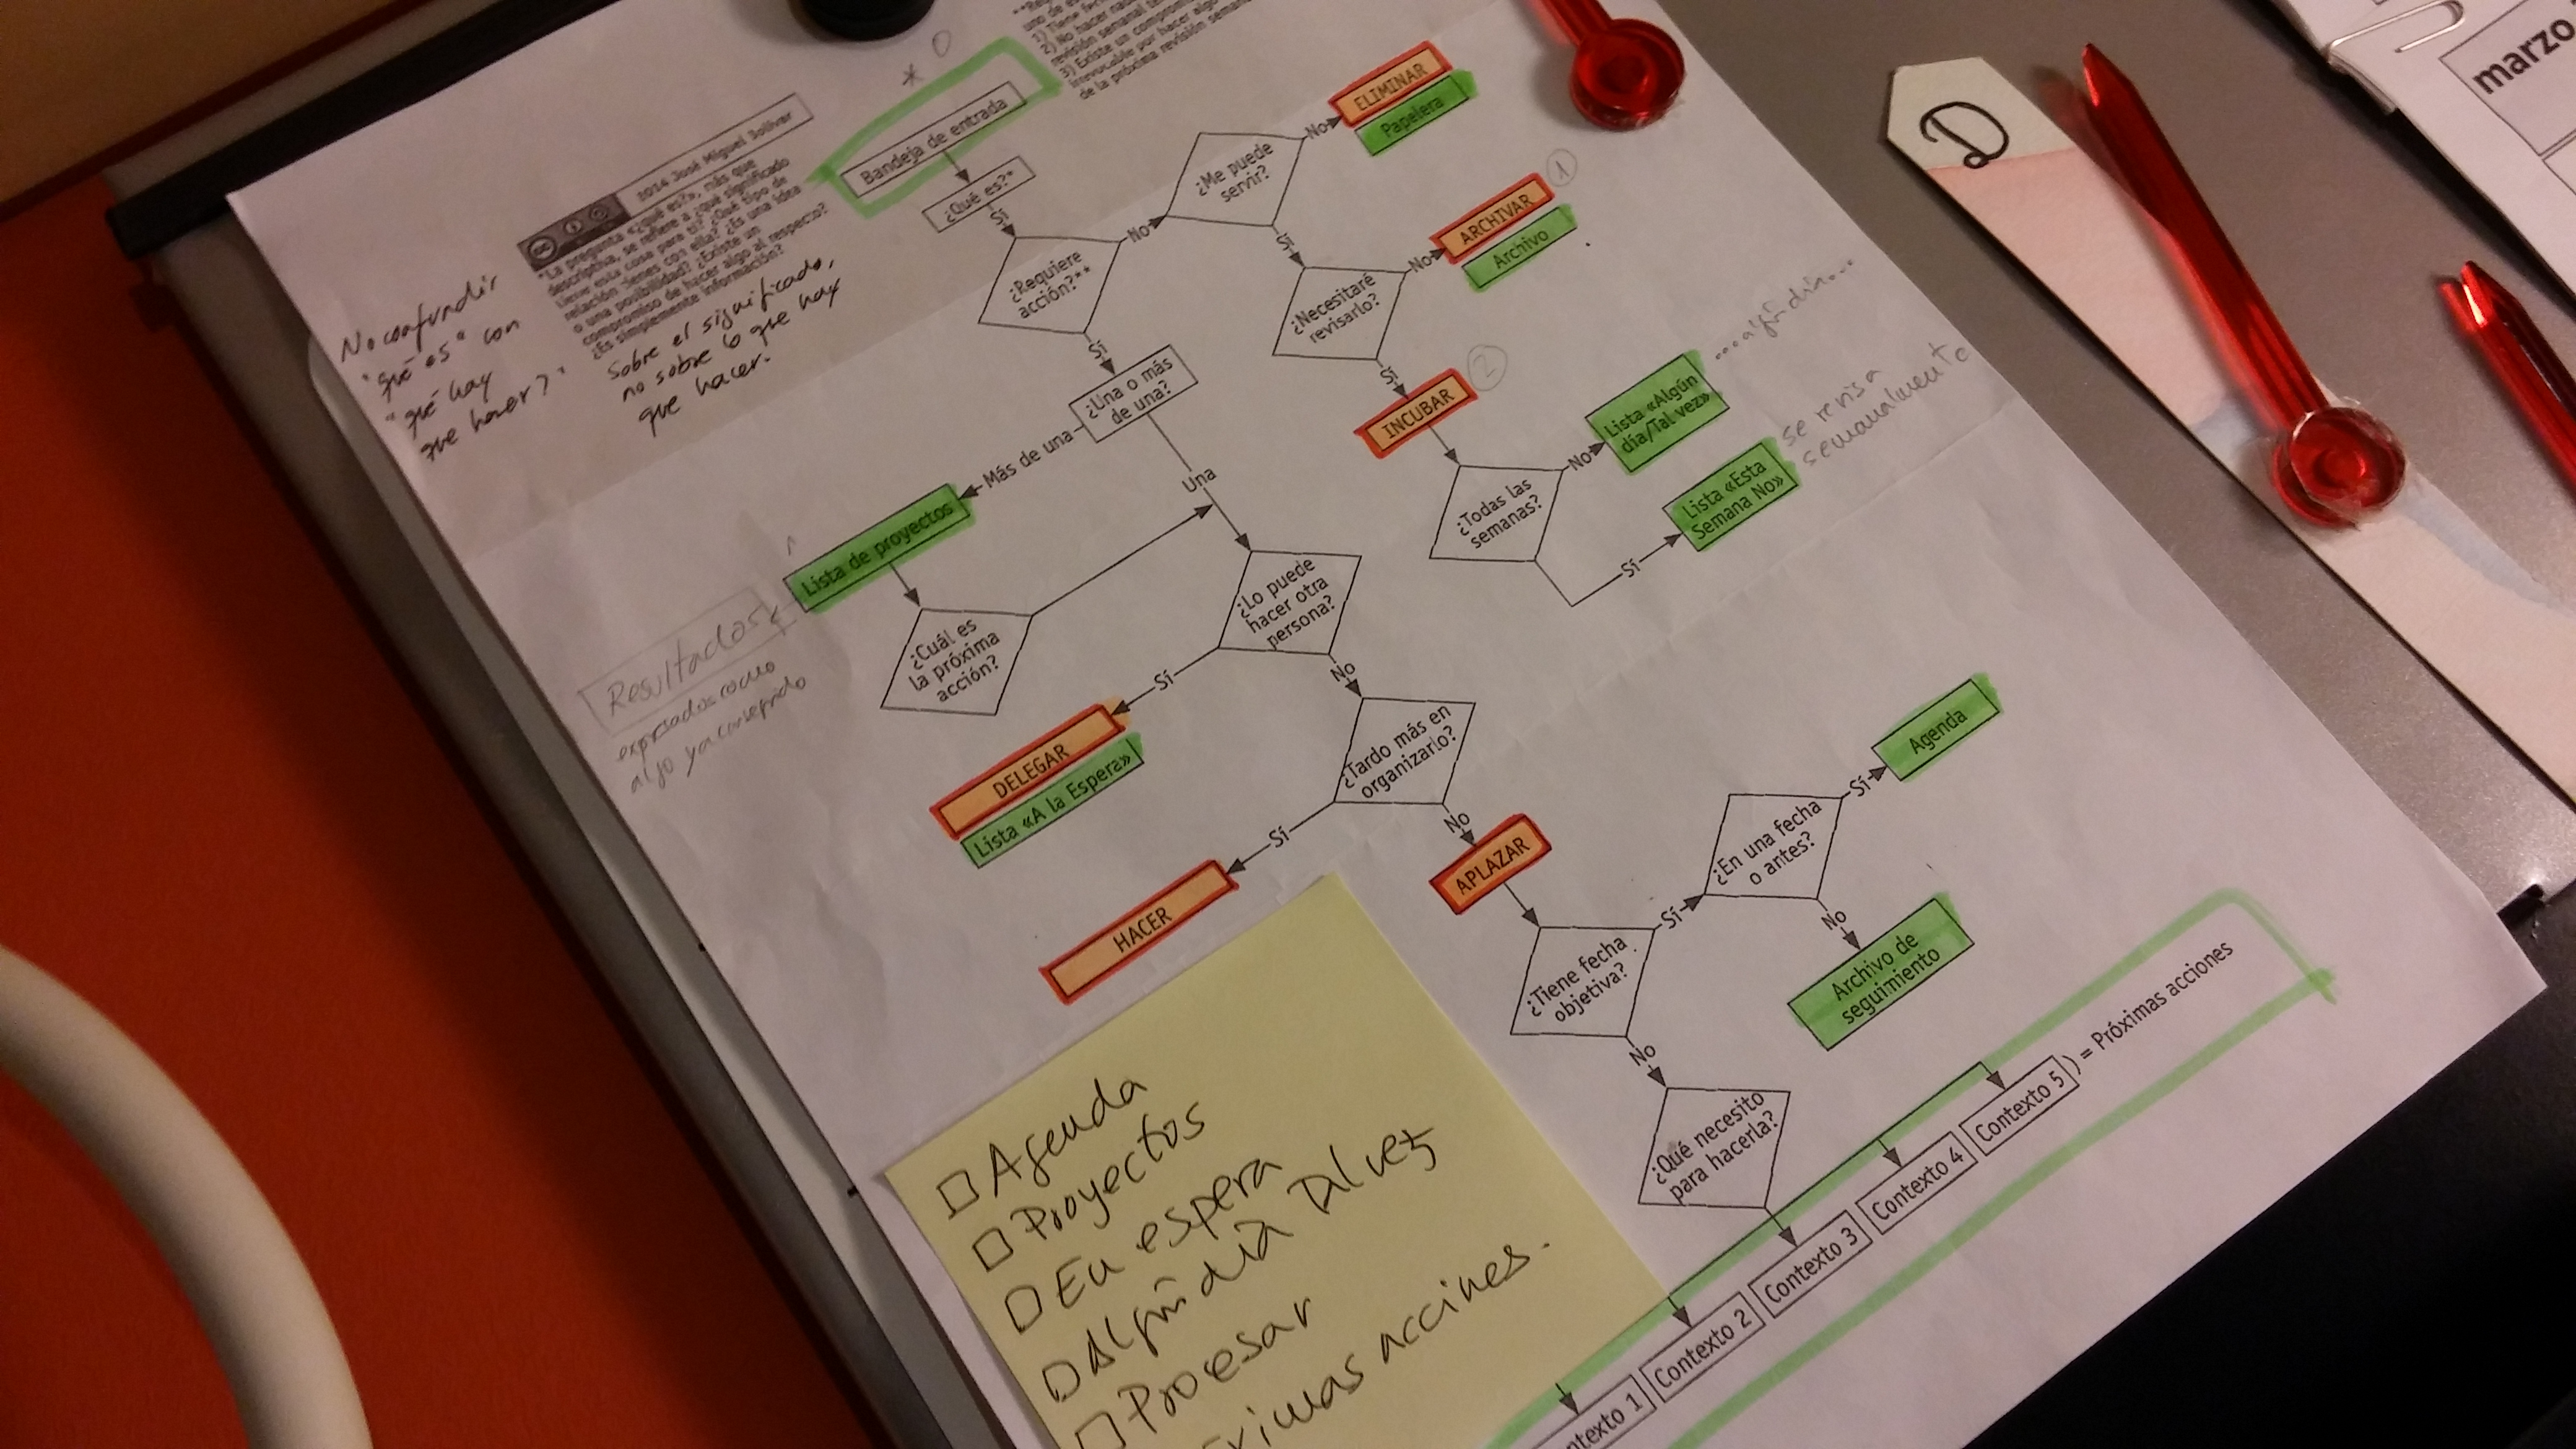 uno de es
1) Tiene fec
2) No hacer nad
revisión semanal te
3) Existe un compromi
irrevocable por hacer algo
de la próxima revisión seman
* O
2014 José Miguel Bolívar
*La pregunta «¿qué es?», más que
descriptiva, se refiere a ¿qué significado
tiene esta cosa para ti? ¿Qué tipo de
relación tienes con ella? ¿Es una idea
o una posibilidad? ¿Existe un
compromiso de hacer algo al respecto?
¿Es simplemente información?
No confundir
"qué es" con
"qué hay
que hacer?"
Sobre el significado,
no sobre lo que hay
que hacer.
Bandeja de entrada
¿Qué es?*
Sí
¿Requiere
acción?**
No
¿Me puede
servir?
No
ELIMINAR
Papelera
Sí
¿Necesitaré
revisarlo?
No
1
ARCHIVAR
Archivo
Sí
2
INCUBAR
¿Todas las
semanas?
No
Lista «Algún
día/Tal vez»
...algún día...
Sí
Lista «Esta
Semana No»
se revisa
semanalmente
Sí
¿Una o más
de una?
Más de una
Lista de proyectos
Resultados
expresados como
algo ya conseguido
¿Cuál es
la próxima
acción?
Una
¿Lo puede
hacer otra
persona?
Sí
DELEGAR
Lista «A la Espera»
No
¿Tardo más en
organizarlo?
Sí
HACER
No
APLAZAR
¿Tiene fecha
objetiva?
Sí
¿En una fecha
o antes?
Sí
Agenda
No
Archivo de
seguimiento
No
¿Qué necesito
para hacerla?
ntexto 1
Contexto 2
Contexto 3
Contexto 4
Contexto 5
) = Próximas acciones
Agenda
Proyectos
En espera
Algún día Tal vez
Procesar
ximas acciones.
D
marzo